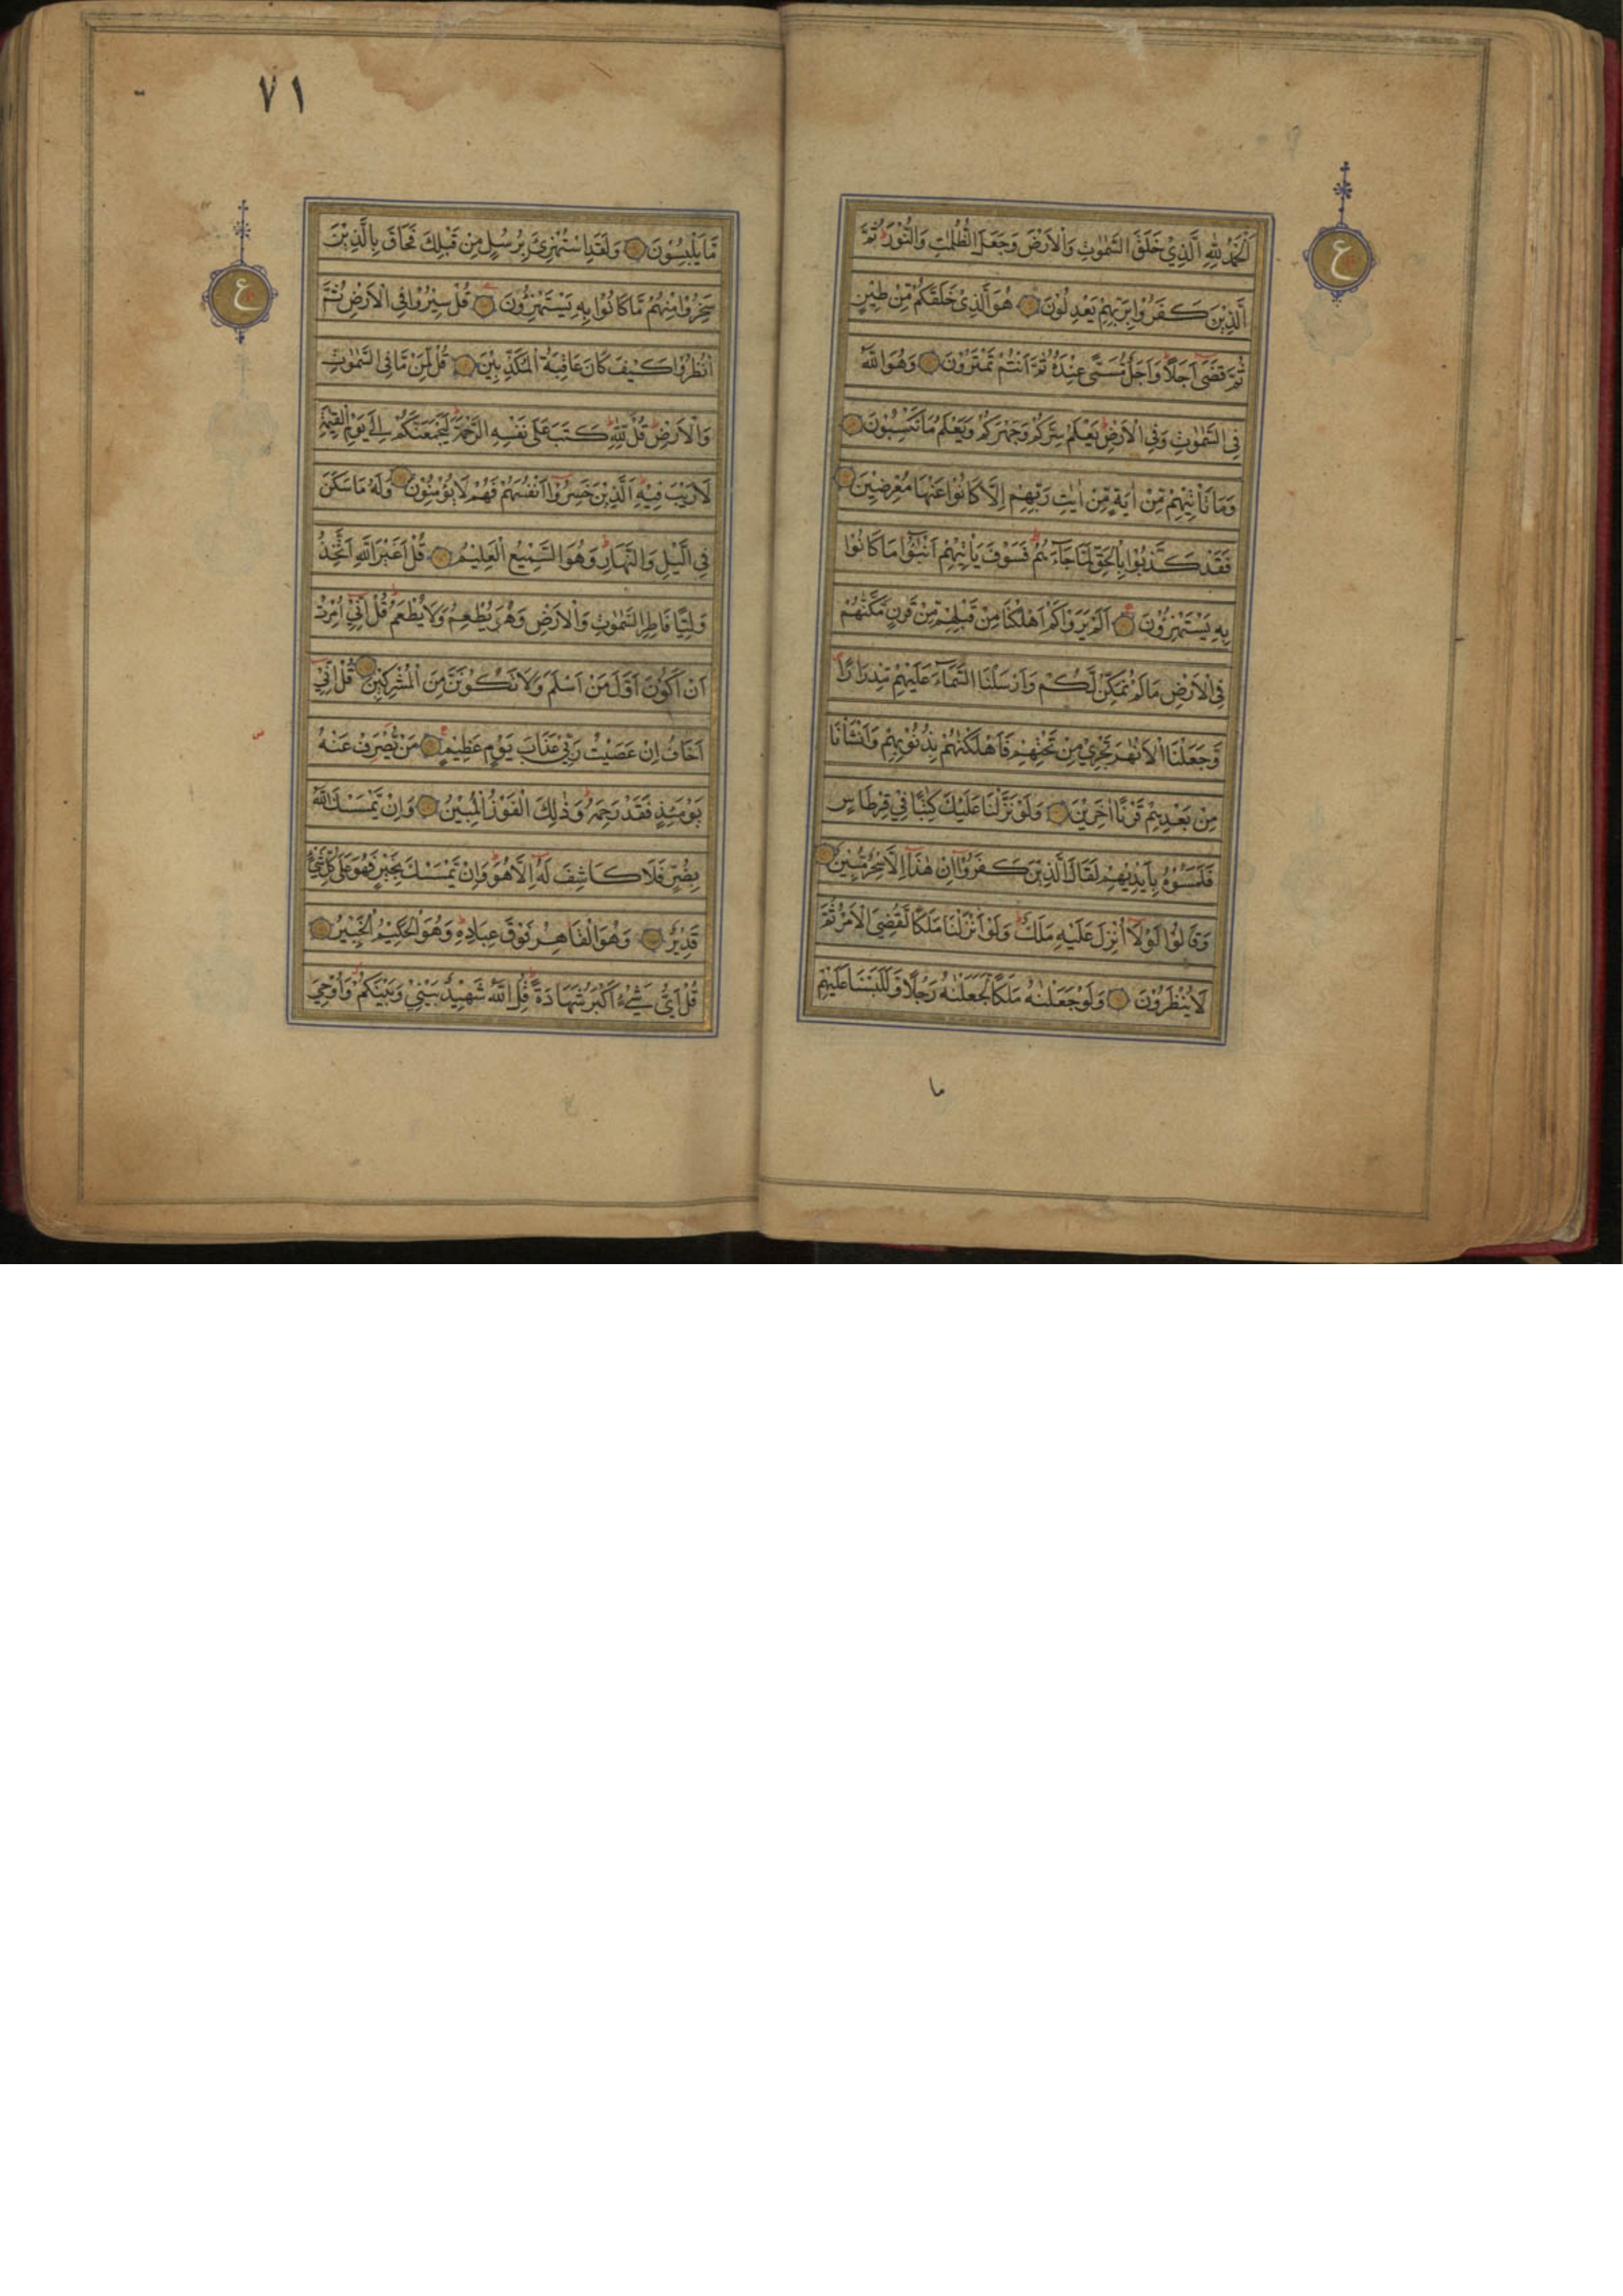 اَلْحَمْدُ لِلّٰهِ الَّذِيْ خَلَقَ السَّمٰوٰتِ وَالْاَرْضَ وَجَعَلَ الظُّلُمٰتِ وَالنُّوْرَ ط ثُمَّ
الَّذِيْنَ كَفَرُوْا بِرَبِّهِمْ يَعْدِلُوْنَ هُوَ الَّذِيْ خَلَقَكُمْ مِّنْ طِيْنٍ
ثُمَّ قَضٰٓى اَجَلًا ط وَاَجَلٌ مُّسَمًّى عِنْدَهٗ ثُمَّ اَنْتُمْ تَمْتَرُوْنَ وَهُوَ اللّٰهُ
فِي السَّمٰوٰتِ وَفِي الْاَرْضِ ط يَعْلَمُ سِرَّكُمْ وَجَهْرَكُمْ وَيَعْلَمُ مَا تَكْسِبُوْنَ
وَمَا تَاْتِيْهِمْ مِّنْ اٰيَةٍ مِّنْ اٰيٰتِ رَبِّهِمْ اِلَّا كَانُوْا عَنْهَا مُعْرِضِيْنَ
فَقَدْ كَذَّبُوْا بِالْحَقِّ لَمَّا جَآءَهُمْ ط فَسَوْفَ يَاْتِيْهِمْ اَنْبٰٓؤُا مَا كَانُوْا
بِهٖ يَسْتَهْزِءُوْنَ اَلَمْ يَرَوْا كَمْ اَهْلَكْنَا مِنْ قَبْلِهِمْ مِّنْ قَرْنٍ مَّكَّنّٰهُمْ
فِي الْاَرْضِ مَا لَمْ نُمَكِّنْ لَّكُمْ وَاَرْسَلْنَا السَّمَآءَ عَلَيْهِمْ مِّدْرَارًا
وَّجَعَلْنَا الْاَنْهٰرَ تَجْرِيْ مِنْ تَحْتِهِمْ فَاَهْلَكْنٰهُمْ بِذُنُوْبِهِمْ وَاَنْشَاْنَا
مِنْ بَعْدِهِمْ قَرْنًا اٰخَرِيْنَ وَلَوْ نَزَّلْنَا عَلَيْكَ كِتٰبًا فِيْ قِرْطَاسٍ
فَلَمَسُوْهُ بِاَيْدِيْهِمْ لَقَالَ الَّذِيْنَ كَفَرُوْٓا اِنْ هٰذَآ اِلَّا سِحْرٌ مُّبِيْنٌ
وَقَالُوْا لَوْلَآ اُنْزِلَ عَلَيْهِ مَلَكٌ ط وَلَوْ اَنْزَلْنَا مَلَكًا لَّقُضِيَ الْاَمْرُ ثُمَّ
لَا يُنْظَرُوْنَ وَلَوْ جَعَلْنٰهُ مَلَكًا لَّجَعَلْنٰهُ رَجُلًا وَّلَلَبَسْنَا عَلَيْهِمْ
ما
ع
٧١
مَّا يَلْبِسُوْنَ وَلَقَدِ اسْتُهْزِئَ بِرُسُلٍ مِنْ قَبْلِكَ فَحَاقَ بِالَّذِيْنَ
سَخِرُوْا مِنْهُمْ مَّا كَانُوْا بِهٖ يَسْتَهْزِءُوْنَ قُلْ سِيْرُوْا فِي الْاَرْضِ ثُمَّ
انْظُرُوْا كَيْفَ كَانَ عَاقِبَةُ الْمُكَذِّبِيْنَ قُلْ لِّمَنْ مَّا فِي السَّمٰوٰتِ
وَالْاَرْضِ ط قُلْ لِّلّٰهِ ط كَتَبَ عَلٰى نَفْسِهِ الرَّحْمَةَ ط لَيَجْمَعَنَّكُمْ اِلٰى يَوْمِ الْقِيٰمَةِ
لَا رَيْبَ فِيْهِ ط اَلَّذِيْنَ خَسِرُوْٓا اَنْفُسَهُمْ فَهُمْ لَا يُؤْمِنُوْنَ وَلَهٗ مَا سَكَنَ
فِي الَّيْلِ وَالنَّهَارِ ط وَهُوَ السَّمِيْعُ الْعَلِيْمُ قُلْ اَغَيْرَ اللّٰهِ اَتَّخِذُ
وَلِيًّا فَاطِرِ السَّمٰوٰتِ وَالْاَرْضِ وَهُوَ يُطْعِمُ وَلَا يُطْعَمُ ط قُلْ اِنِّيْٓ اُمِرْتُ
اَنْ اَكُوْنَ اَوَّلَ مَنْ اَسْلَمَ وَلَا تَكُوْنَنَّ مِنَ الْمُشْرِكِيْنَ قُلْ اِنِّيْٓ
اَخَافُ اِنْ عَصَيْتُ رَبِّيْ عَذَابَ يَوْمٍ عَظِيْمٍ مَنْ يُّصْرَفْ عَنْهُ
يَوْمَئِذٍ فَقَدْ رَحِمَهٗ ط وَذٰلِكَ الْفَوْزُ الْمُبِيْنُ وَاِنْ يَّمْسَسْكَ اللّٰهُ
بِضُرٍّ فَلَا كَاشِفَ لَهٗٓ اِلَّا هُوَ ط وَاِنْ يَّمْسَسْكَ بِخَيْرٍ فَهُوَ عَلٰى كُلِّ شَيْءٍ
قَدِيْرٌ وَهُوَ الْقَاهِرُ فَوْقَ عِبَادِهٖ ط وَهُوَ الْحَكِيْمُ الْخَبِيْرُ
قُلْ اَيُّ شَيْءٍ اَكْبَرُ شَهَادَةً ط قُلِ اللّٰهُ شَهِيْدٌ بَيْنِيْ وَبَيْنَكُمْ وَاُوْحِيَ
ع